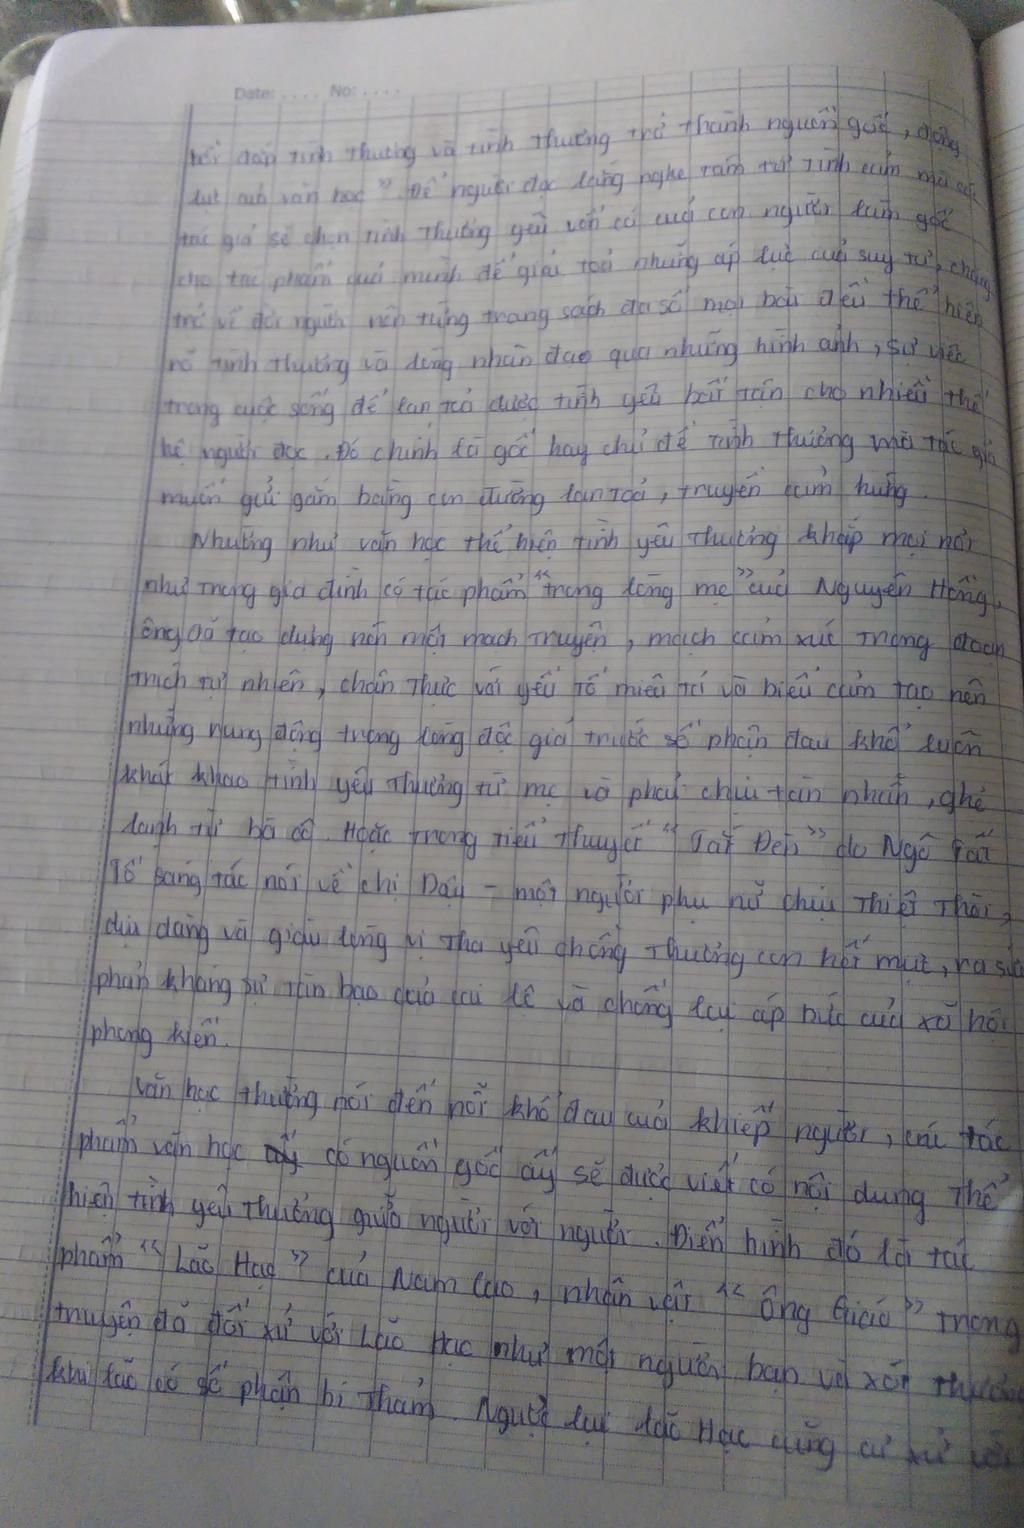 Date: .... No: ....
bồi đắp tình thương và tình thương trở thành nguồn gốc, động
lực của văn học". Để người đọc lắng nghe tâm tư tình cảm mà các
tác giả sẽ chọn tình thương yêu vốn có của con người làm gốc
cho tác phẩm của mình để giải toả những áp lực của suy tư,
trở về đời người nên từng trang sách đa số mọi bài đều thể hiện
rõ tình thương và lòng nhân đạo qua những hình ảnh, sự việc
trong cuộc sống để lan toả được tình yêu bất tận cho nhiều thế
hệ người đọc. Đó chính là gốc hay chủ đề tình thương mà tác giả
muốn gửi gắm bằng con đường lan toả, truyền cảm hứng.
Nhường như văn học thể hiện tình yêu thương khắp mọi nơi
như trong gia đình có tác phẩm "trong lòng mẹ" của Nguyên Hồng,
ông đã tạo dựng nên một mạch truyện, mạch cảm xúc trong đoạn
trích tự nhiên, chân thực với yếu tố miêu tả và biểu cảm tạo nên
những rung động trong lòng độc giả trước số phận đau khổ luôn
khát khao tình yêu thương từ mẹ và phải chịu tàn nhẫn, ghẻ
lạnh từ bà cô. Hoặc trong tiểu thuyết "Tắt Đèn" do Ngô Tất
Tố sáng tác nói về chị Dậu - một người phụ nữ chịu thiệt thòi,
dịu dàng và giàu lòng vị tha yêu chồng thương con hết mực, ra sức
phản kháng sự tàn bạo của cai lệ và chống lại áp bức của xã hội
phong kiến.
Văn học thường nói đến nỗi khổ đau của khiếp người, các tác
phẩm văn học có nguồn gốc ấy sẽ được viết có nội dung thể
hiện tình yêu thương giữa người với người. Điển hình đó là tác
phẩm "Lão Hạc" của Nam Cao, nhân vật "Ông Giáo" trong
truyện đã đối xử với Lão Hạc như một người bạn và xót thương
khi lão có số phận bi thảm. Ngược lại lão Hạc cũng cư xử với